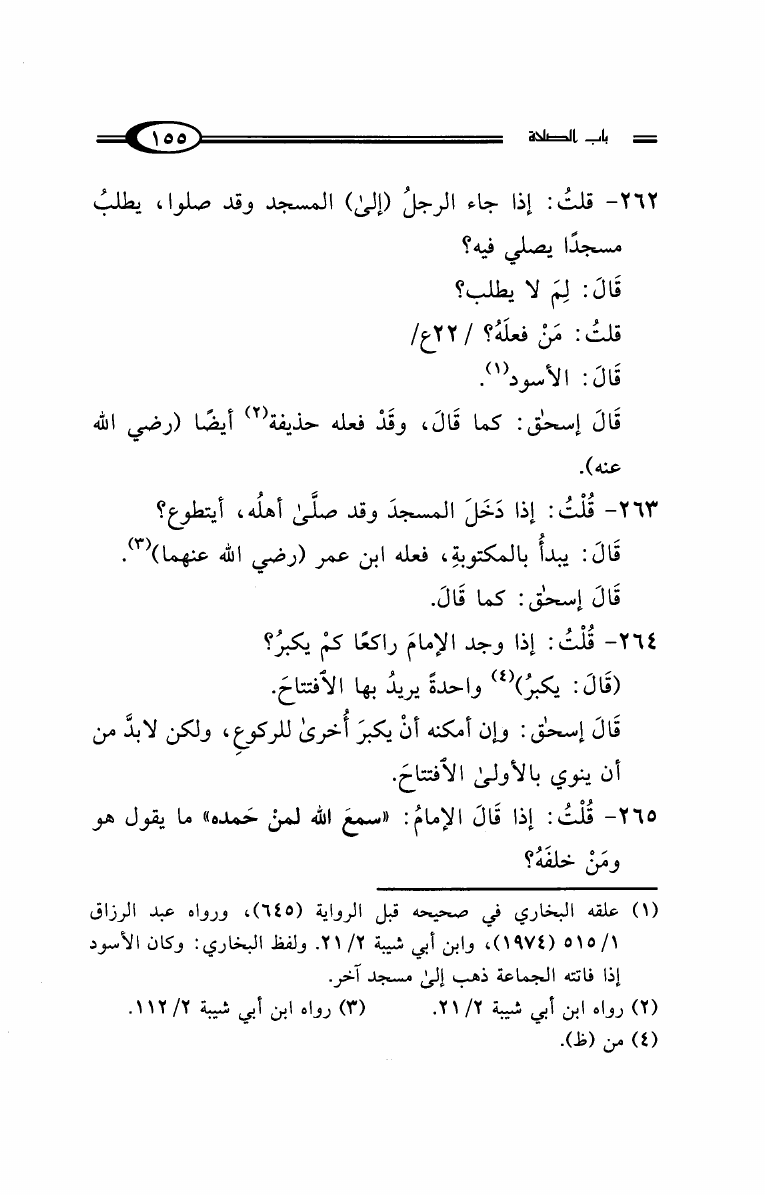 باب الصلاة ١٥٥
٢٦٢- قلتُ: إذا جاء الرجلُ (إلىٰ) المسجد وقد صلوا، يطلبُ
مسجدًا يصلي فيه؟
قَالَ: لِمَ لا يطلب؟
قلتُ: مَنْ فعلَهُ؟ /٢٢ع/
قَالَ: الأسود(١).
قَالَ إسحٰق: كما قَالَ، وقَدْ فعله حذيفة(٢) أيضًا (رضي الله
عنه).
٢٦٣- قُلْتُ: إذا دَخَلَ المسجدَ وقد صلَّىٰ أهلُه، أيتطوع؟
قَالَ: يبدأُ بالمكتوبةِ، فعله ابن عمر (رضي الله عنهما)(٣).
قَالَ إسحٰق: كما قَالَ.
٢٦٤- قُلْتُ: إذا وجد الإمامَ راكعًا كمْ يكبرُ؟
(قَالَ: يكبرُ)(٤) واحدةً يريدُ بها الاَفتتاحَ.
قَالَ إسحٰق: وإن أمكنه أنْ يكبرَ أُخرىٰ للركوعِ، ولكن لابدَّ من
أن ينوي بالأولىٰ الاَفتتاحَ.
٢٦٥- قُلْتُ: إذا قَالَ الإمامُ: «سمعَ الله لمنْ حَمده» ما يقول هو
ومَنْ خلفَهُ؟
(١) علقه البخاري في صحيحه قبل الرواية (٦٤٥)، ورواه عبد الرزاق
١/ ٥١٥ (١٩٧٤)، وابن أبي شيبة ٢/ ٢١. ولفظ البخاري: وكان الأسود
إذا فاتته الجماعة ذهب إلىٰ مسجد آخر.
(٢) رواه ابن أبي شيبة ٢/ ٢١. (٣) رواه ابن أبي شيبة ٢/ ١١٢.
(٤) من (ظ).